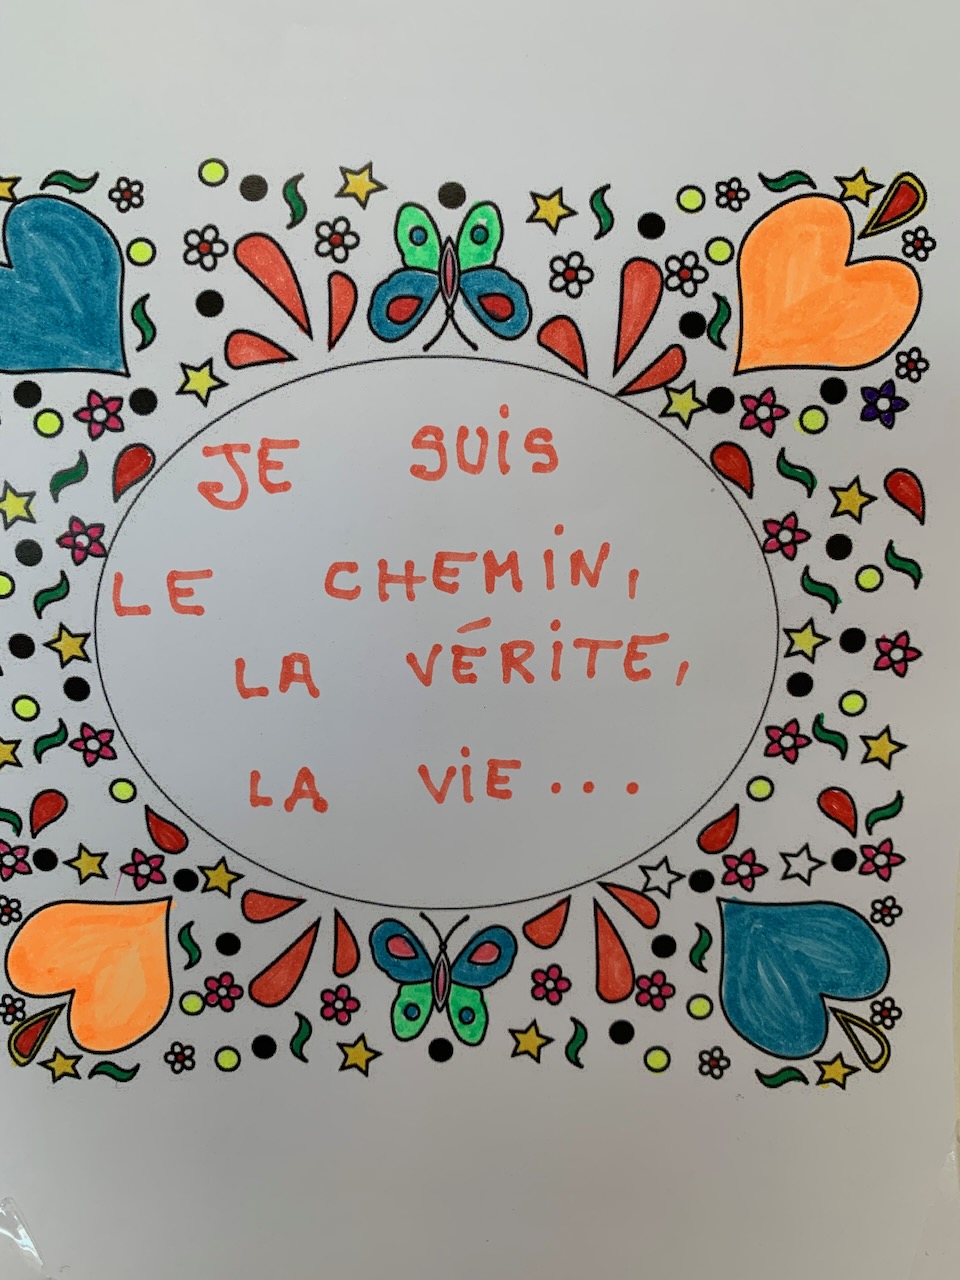 JE SUiS
LE CHEMiN,
LA VÉRiTE,
LA ViE...